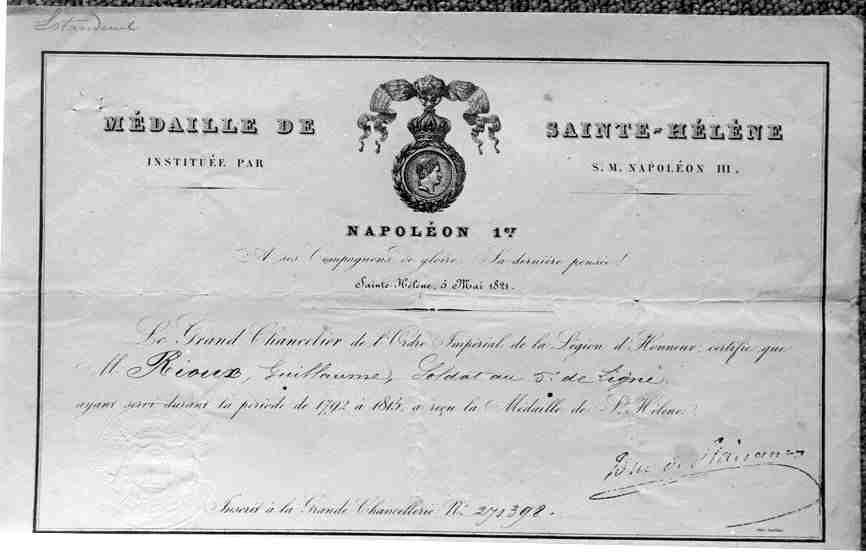 Estandeuil
MÉDAILLE DE SAINTE-HÉLÈNE
INSTITUÉE PAR S. M. NAPOLÉON III.
NAPOLÉON 1er
A ses Compagnons de gloire, Sa dernière pensée!
Sainte-Hélène, 5 Mai 1821.
Le Grand Chancelier de l'Ordre Impérial de la Légion d'Honneur, certifie que
M. Rioux, Guillaume, Soldat au 5e de Ligne,
ayant servi durant la période de 1792 à 1815, a reçu la Médaille de Ste Hélène.
Duc de Plaisance
Inscrit à la Grande Chancellerie No 271398.